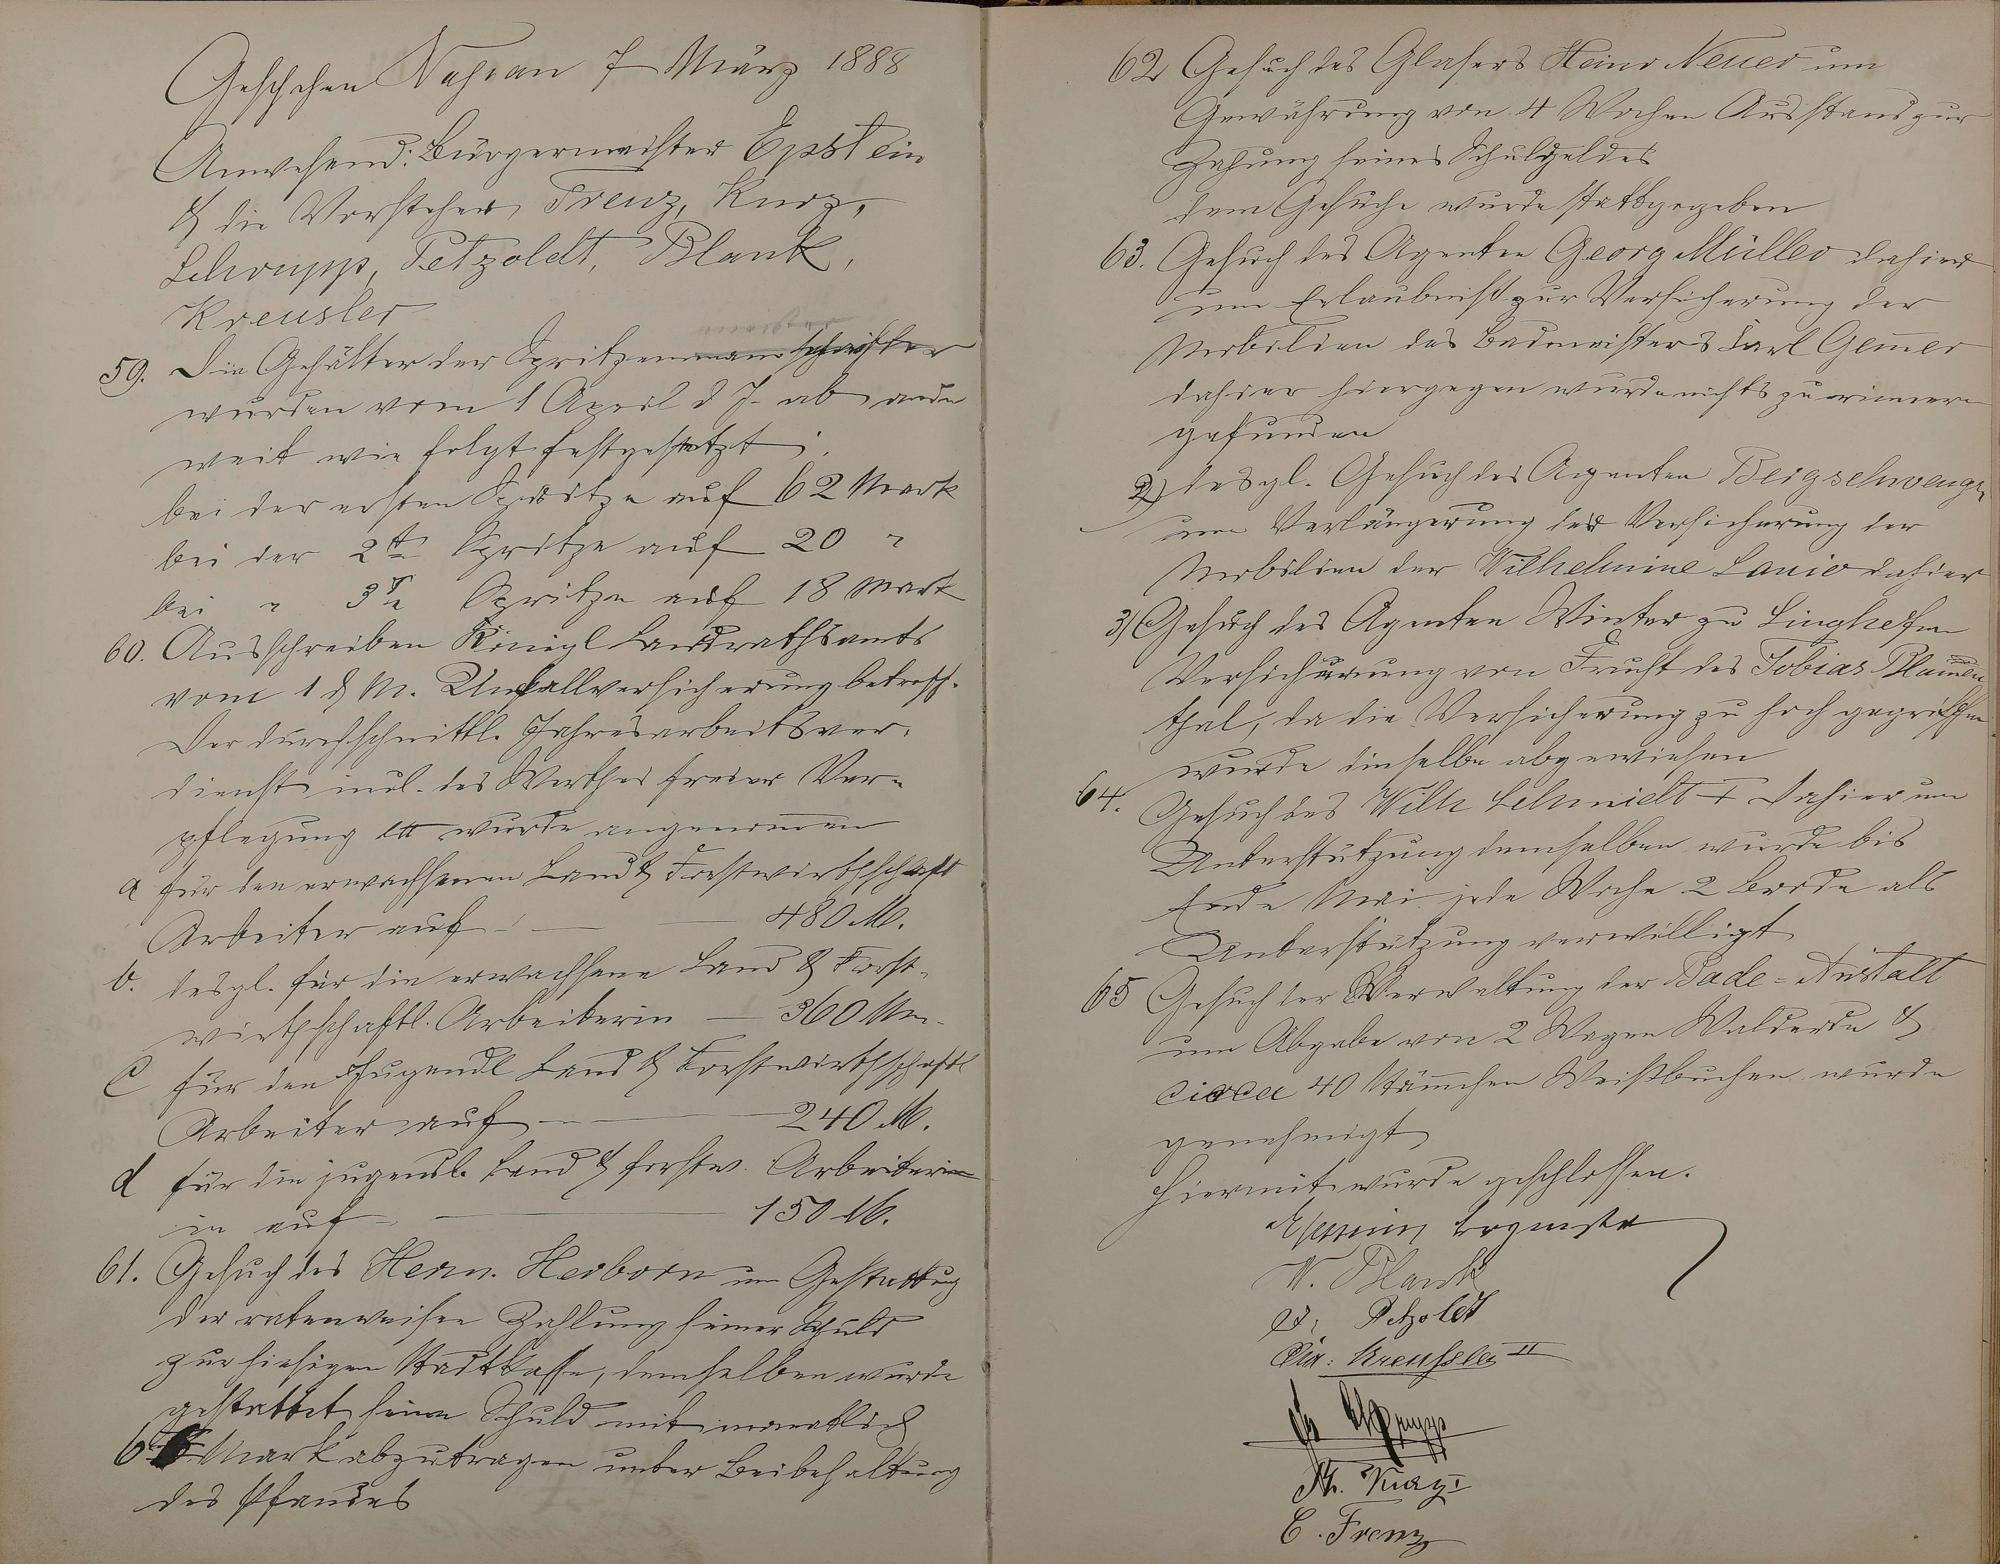 Geschehen Nassau 7 März 1888
Anwesend: Bürgermeister Epstein
& die Vorsteher Frenz, Kurz,
Schrupp, Petzoldt, Blank,
Kreusler
59. Die Gehälter der Spritzenmeister
wurden vom 1 April d J. ab ander
weit wie folgt festgesetzt:
bei der ersten Spritze auf 62 Mark
bei der 2te Spritze auf 20 "
bei " 3te Spritze auf 18 Mark
60. Ausschreiben Königl Landrathsamts
vom 1 d M. Unfallversicherung betreff.
Der durchschnittl. Jahresarbeitsver-
dienst incl. des Werthes freier Ver-
pflegung ett wurde angenommen
a für den erwachsenen Land & Forstwirthschaftl
Arbeiter auf — — 480 M.
b. desgl. für die erwachsene Land & Forst-
wirthschaftl. Arbeiterin — 360 M
c für den Jugendl Land & Forstwirthschaftl
Arbeiter auf — — 240 M.
d für die jugendl. Land & forstw. Arbeiterin
in auf — 150 M.
61. Gesuch des Herm. Herborn um Gestattung
der ratenweisen Zahlung seiner Schuld
zur hiesigen Stadtkasse, demselben wurde
gestattet seine Schuld mit monatlich
6 Mark abzutragen unter Beibehaltung
des Pfandes
62 Gesuch des Glasers Heinr Neuer um
Gewährung von 4 Wochen Ausstand zur
Zahlung seines Schulgeldes
dem Gesuche wurde stattgegeben
63. Gesuch des Agenten Georg Müller dahier
um Erlaubniß zur Versicherung der
Mobilien des Bademeisters Carl Gemmer
dahier hiergegen wurde nichts zu erinnern
gefunden
2) desgl. Gesuch des Agenten Bergschwenger
um Verlängerung der Versicherung der
Mobilien der Wilhelmine Lanio dahier
3) Gesuch des Agenten Winter zu
Versicherung von Frucht des Tobias Blumen
thal, da die Versicherung zu hoch gegriffen
wurde dieselbe abgewiesen
64. Gesuch des Wilh Schmidt I dahier um
Unterstützung demselben wurde bis
Ende Mai jede Woche 2 Brode als
Unterstützung verwilligt
65 Gesuch der Verwaltung der Bade-Anstalt
um Abgabe von 2 Wagen Walderde &
circa 40 Stämmchen Weißbuchen wurde
genehmigt
Hiermit wurde geschlossen.
Epstein
W. Blank
Petzoldt
Kreussler II
Schrupp
Kurz I
C. Frenz